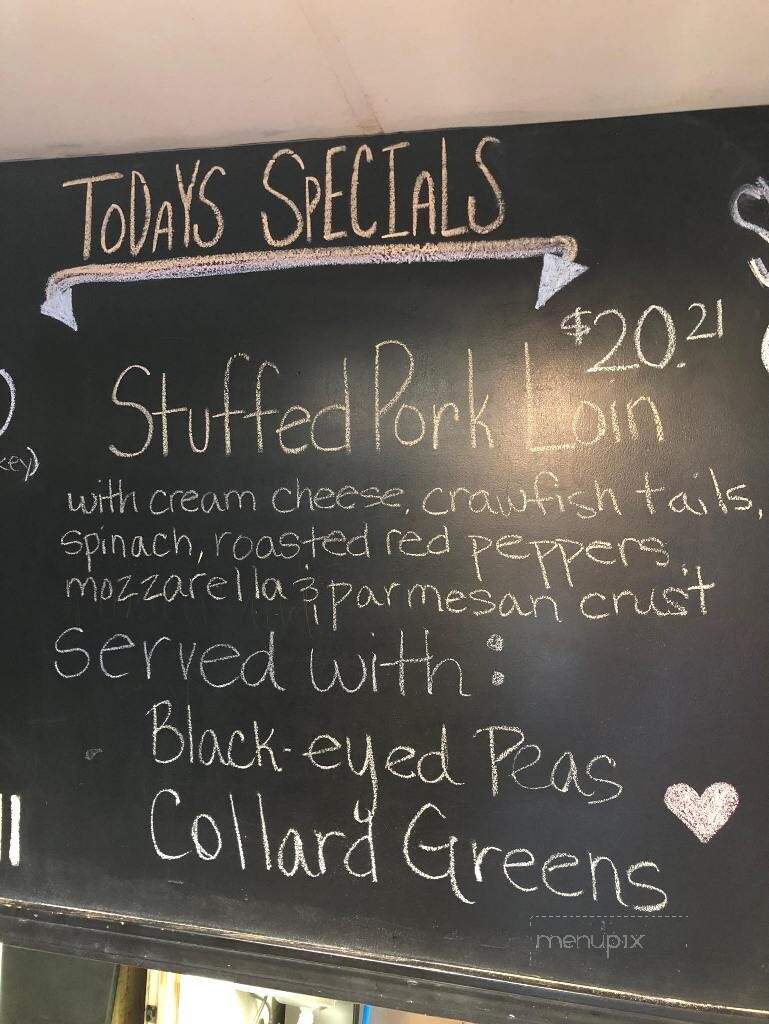 TODAYS SPECIALS
$20.21
Stuffed Pork Loin
with cream cheese, crawfish tails,
spinach, roasted red peppers,
mozzarella & parmesan crust
served with:
Black-eyed Peas
Collard Greens
menupix